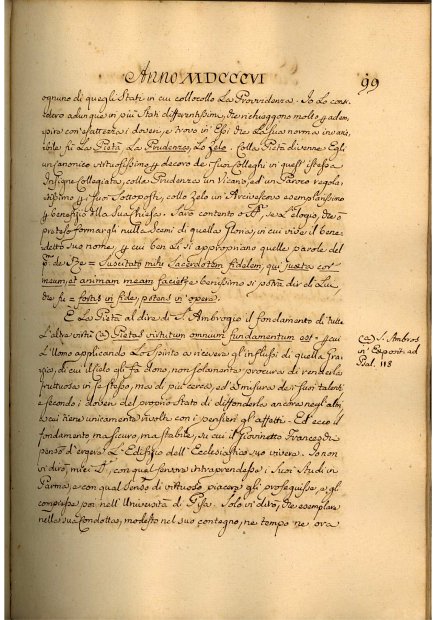 Anno MDCCCVI
99
ognuno di quegli Stati in cui collocollo La Provvidenza. Io Lo consi-
dero adunque in più Stati differentissimi, che richieggono molto per adem-
pire con esattezza i doveri, e trovo in Essi che La sua norma invaria-
bile fù La Pietà, La Prudenza, Lo Zelo. Colla Pietà divenne Egli
un Canonico virtuosissimo, e decoro de' suoi Colleghi in quest' istessa
Insigne Collegiata, colla Prudenza un Vicario, ed un Paroco regola-
tissimo pe' suoi Sottoposti, collo Zelo un Arciprete esemplarissimo
a benefizio della sua Chiesa. Sarò contento se L' Elogio, che ò
preteso formargli nulla scemi di quella Gloria, in cui vive il bene-
detto suo nome, e cui ben Li si appropriano quelle parole del
p.° de' Re = Suscitabo mihi Sacerdotem fidelem, qui juxta cor
meum, et animam meam faciet = benissimo si potrà dir di Lui,
che fu = fortis in fide, potens in opera.
È La Pietà al dire di S. Ambrogio il fondamento di tutte
L'altre virtù (a) Pietas virtutum omnium fundamentum est = qui
L'Uomo applicando Lo Spirito a ricevere gl'influssi di quella Gra-
zia, di cui il Cielo gli fa dono, non solamente procura di renderla
fruttuosa in se stesso, ma di più cerca, ed a misura de' suoi talenti,
e secondo i doveri del proprio Stato di diffonderla ancora negli altri,
a cui tiene unicamente rivolti con i pensieri gli affetti. Ed ecco il
fondamento ma sicuro, ma stabile, su cui il Giovinetto Francesco
pensò d'ergere L'Edifizio dell'Ecclesiastico suo vivere. Io non
vi dirò, miei con qual fervore intraprendesse i suoi Studi in
Parma, e con qual senso di virtuoso piacere gli proseguisse, e gli
compiesse poi nell'Università di Pisa. Solo vi dirò, che esemplare
nella sua Condotta, modesto nel suo contegno, ne tempo ne ora
(a) S. Ambros.
in Exposit. ad
Psal. 118